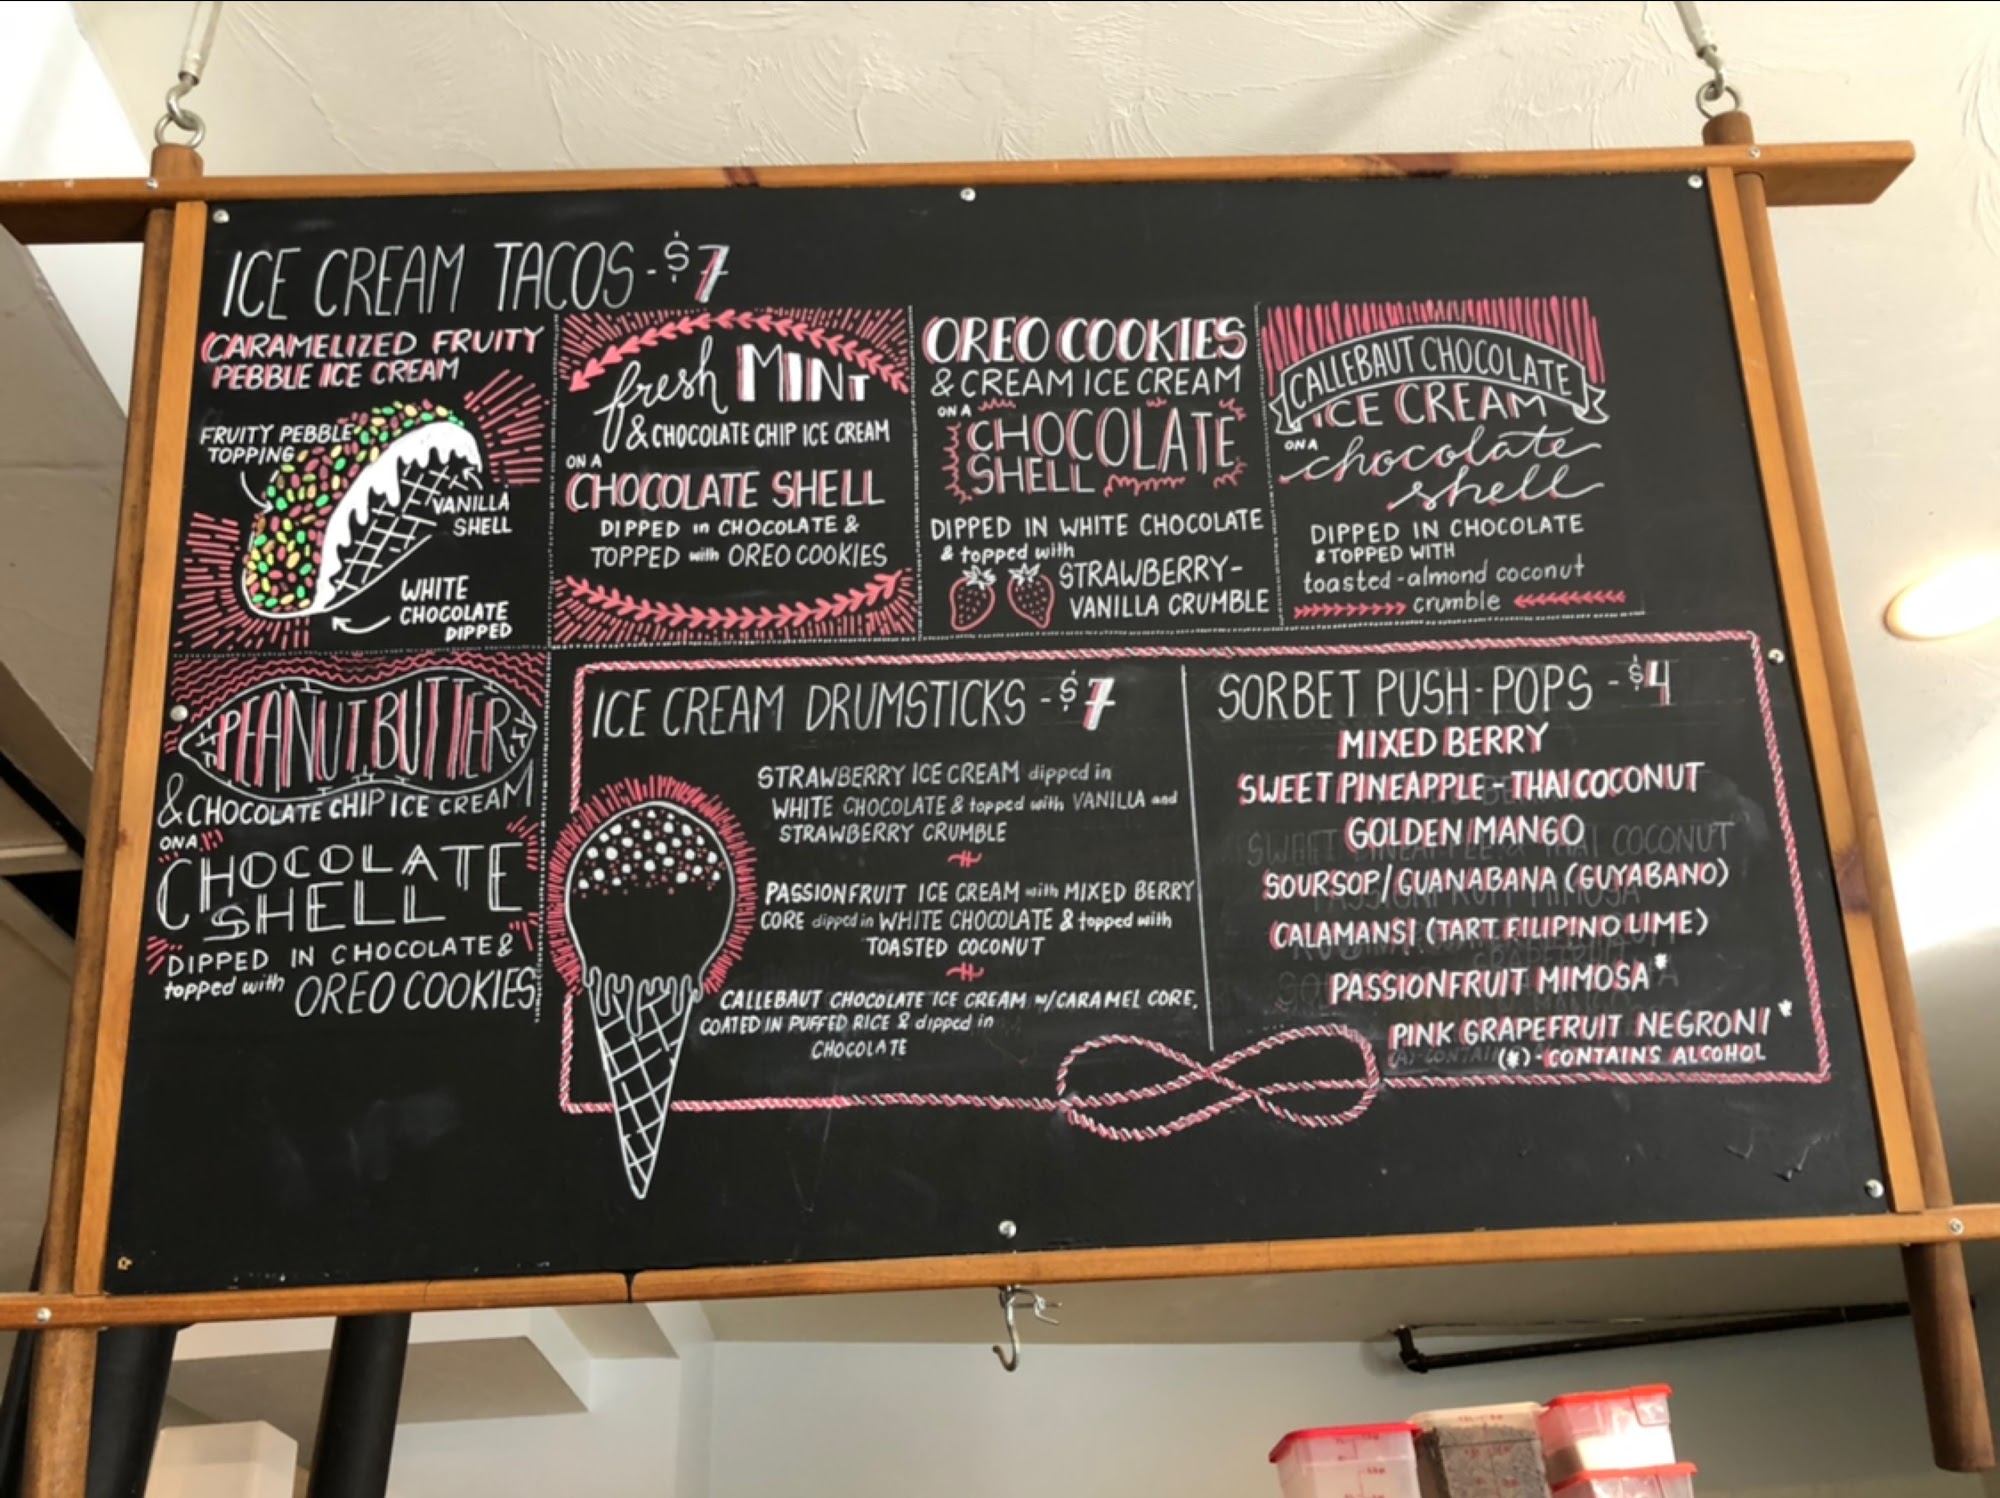 ICE CREAM TACOS - $7
CARAMELIZED FRUITY
PEBBLE ICE CREAM
FRUITY PEBBLE
TOPPING
VANILLA
SHELL
WHITE
CHOCOLATE
DIPPED
fresh MINT
& CHOCOLATE CHIP ICE CREAM
ON A
CHOCOLATE SHELL
DIPPED in CHOCOLATE &
TOPPED with OREO COOKIES
OREO COOKIES
& CREAM ICE CREAM
ON A
CHOCOLATE
SHELL
DIPPED IN WHITE CHOCOLATE
& topped with
STRAWBERRY-
VANILLA CRUMBLE
CALLEBAUT CHOCOLATE
ICE CREAM
ON A
chocolate
shell
DIPPED IN CHOCOLATE
& TOPPED WITH
toasted-almond coconut
crumble
PEANUT BUTTER
& CHOCOLATE CHIP ICE CREAM
ON A
CHOCOLATE
SHELL
DIPPED IN CHOCOLATE &
topped with OREO COOKIES
ICE CREAM DRUMSTICKS - $7
STRAWBERRY ICE CREAM dipped in
WHITE CHOCOLATE & topped with VANILLA and
STRAWBERRY CRUMBLE
PASSIONFRUIT ICE CREAM with MIXED BERRY
CORE dipped in WHITE CHOCOLATE & topped with
TOASTED COCONUT
CALLEBAUT CHOCOLATE ICE CREAM w/CARAMEL CORE,
COATED IN PUFFED RICE & dipped in
CHOCOLATE
SORBET PUSH-POPS - $4
MIXED BERRY
SWEET PINEAPPLE - THAI COCONUT
GOLDEN MANGO
SOURSOP/GUANABANA (GUYABANO)
CALAMANSI (TART FILIPINO LIME)
PASSIONFRUIT MIMOSA*
PINK GRAPEFRUIT NEGRONI*
(*)- CONTAINS ALCOHOL